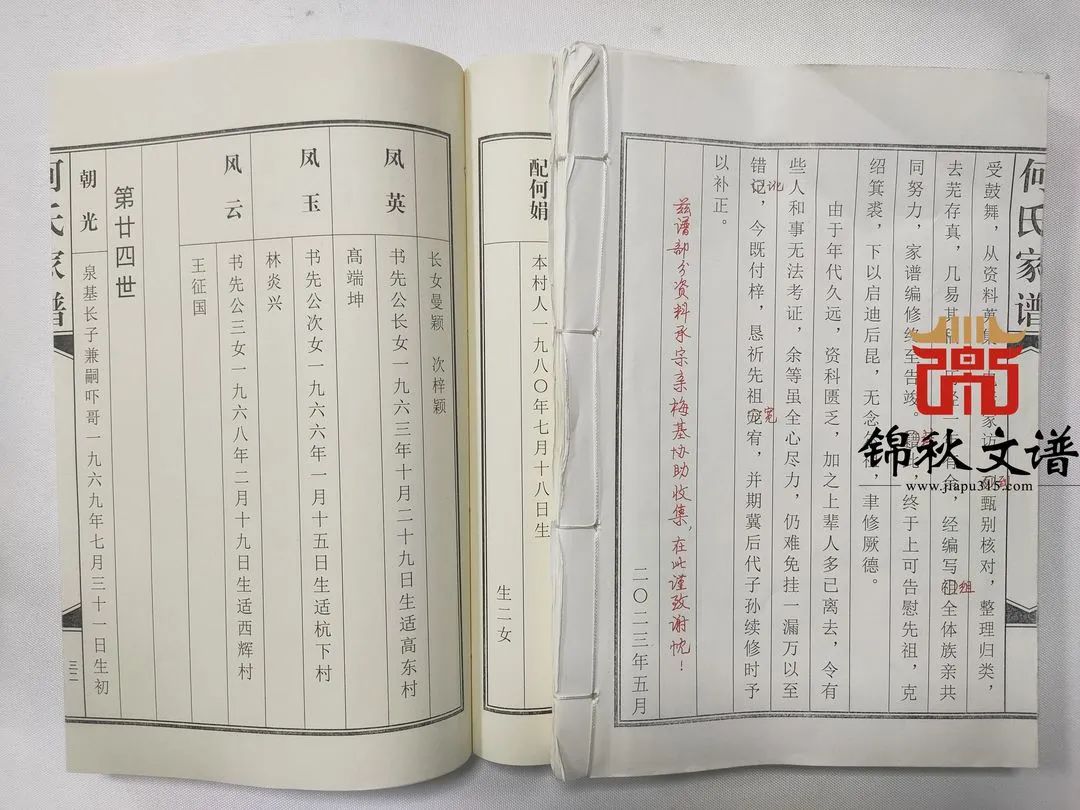 何氏家谱
受鼓舞，从资料蒐集
家访
甄别核对，整理归类，
去芜存真，几易其稿
经一
有余，经编写祖全体族亲共
组
同努力，家谱编修终至告竣。
终于上可告慰先祖，克
绍箕裘，下以启迪后昆，无念
聿修厥德。
由于年代久远，资科匮乏，加之上辈人多已离去，令有
些人和事无法考证，余等虽全心尽力，仍难免挂一漏万以至
错记，今既付梓，恳祈先祖宠宥，并期冀后代子孙续修时予
讹
宽
以补正。
兹谱部分资料承宗亲梅基协助收集，在此谨致谢忱！
二〇二三年五月
锦秋文谱
www.jiapu315.com
配何娟
本村人一九八〇年七月十八日生
生二女
长女曼颖 次梓颖
凤英
书先公长女一九六三年十月二十九日生适高东村
高端坤
凤玉
书先公次女一九六六年一月十五日生适杭下村
林炎兴
凤云
书先公三女一九六八年二月十九日生适西辉村
王征国
第廿四世
朝光
泉基长子兼嗣吓哥一九六九年七月三十一日生初
何氏家谱
三二